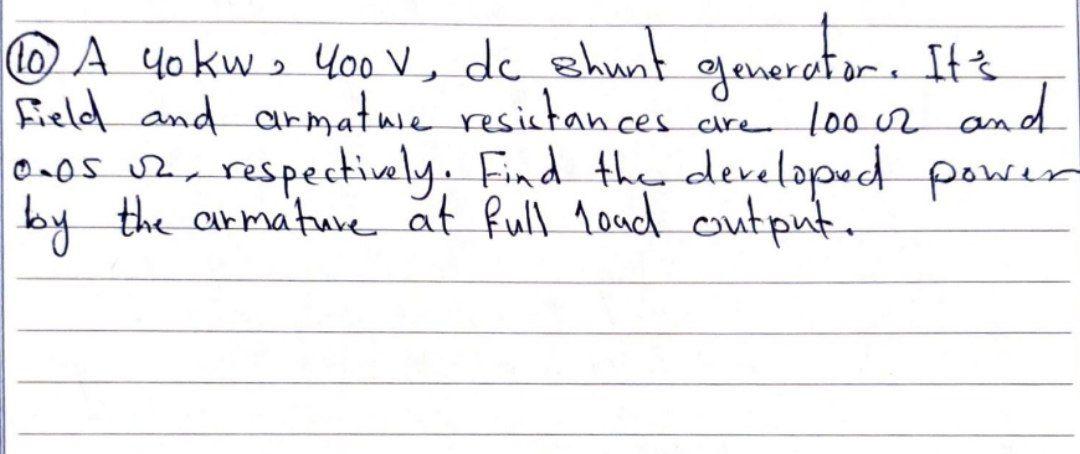 (10) A 40 kw, 400 V, dc shunt generator. It's
Field and armature resistances are 100 Ω and
0.05 Ω, respectively. Find the developed power
by the armature at full load output.